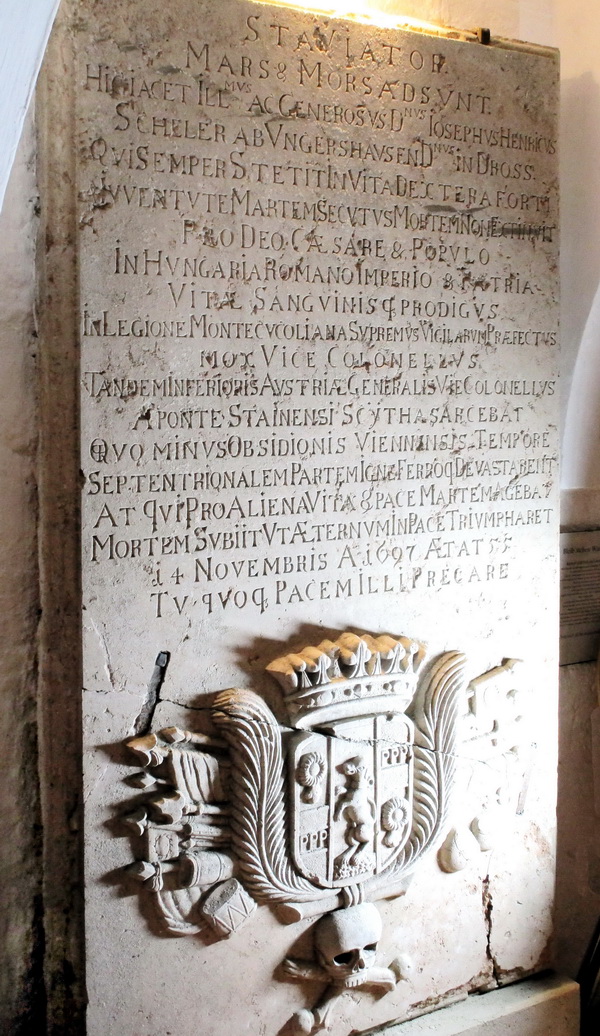 STA VIATOR.
MARS & MORS ADSVNT.
HIC IACET ILL.MVS AC GENEROSVS D.NVS IOSEPHVS HENRICVS
SCHELER AB VNGERSHAVSEN D.NVS IN DROSS.
QVI SEMPER STETIT IN VITA DEXTERA FORTI
IVVENTVTE MARTEM SECVTVS MORTEM NON EXTIMVIT
PRO DEO CÆSARE & POPVLO
IN HVNGARIA ROMANO IMPERIO & PATRIA
VITÆ SANGVINISQ PRODIGVS
IN LEGIONE MONTECVCOLIANA SVPREMVS VIGILARVM PRÆFECTVS
MOX VICE COLONELLVS
TANDEM INFERIORIS AVSTRIÆ GENERALIS VICE COLONELLVS
A PONTE STAINENSI SCYTHAS ARCEBAT
QVO MINVS OBSIDIONIS VIENNENSIS TEMPORE
SEPTENTRIONALEM PARTEM IGNE FERROQ DEVASTARENT
AT QVI PRO ALIENA VITA & PACE MARTEM AGEBAT
MORTEM SVBIIT VT ÆTERNVM IN PACE TRIVMPHARET
14 NOVEMBRIS A 1697 ÆTAT 55
TV QVOQ PACEM ILLI PRECARE
PPP
PPP